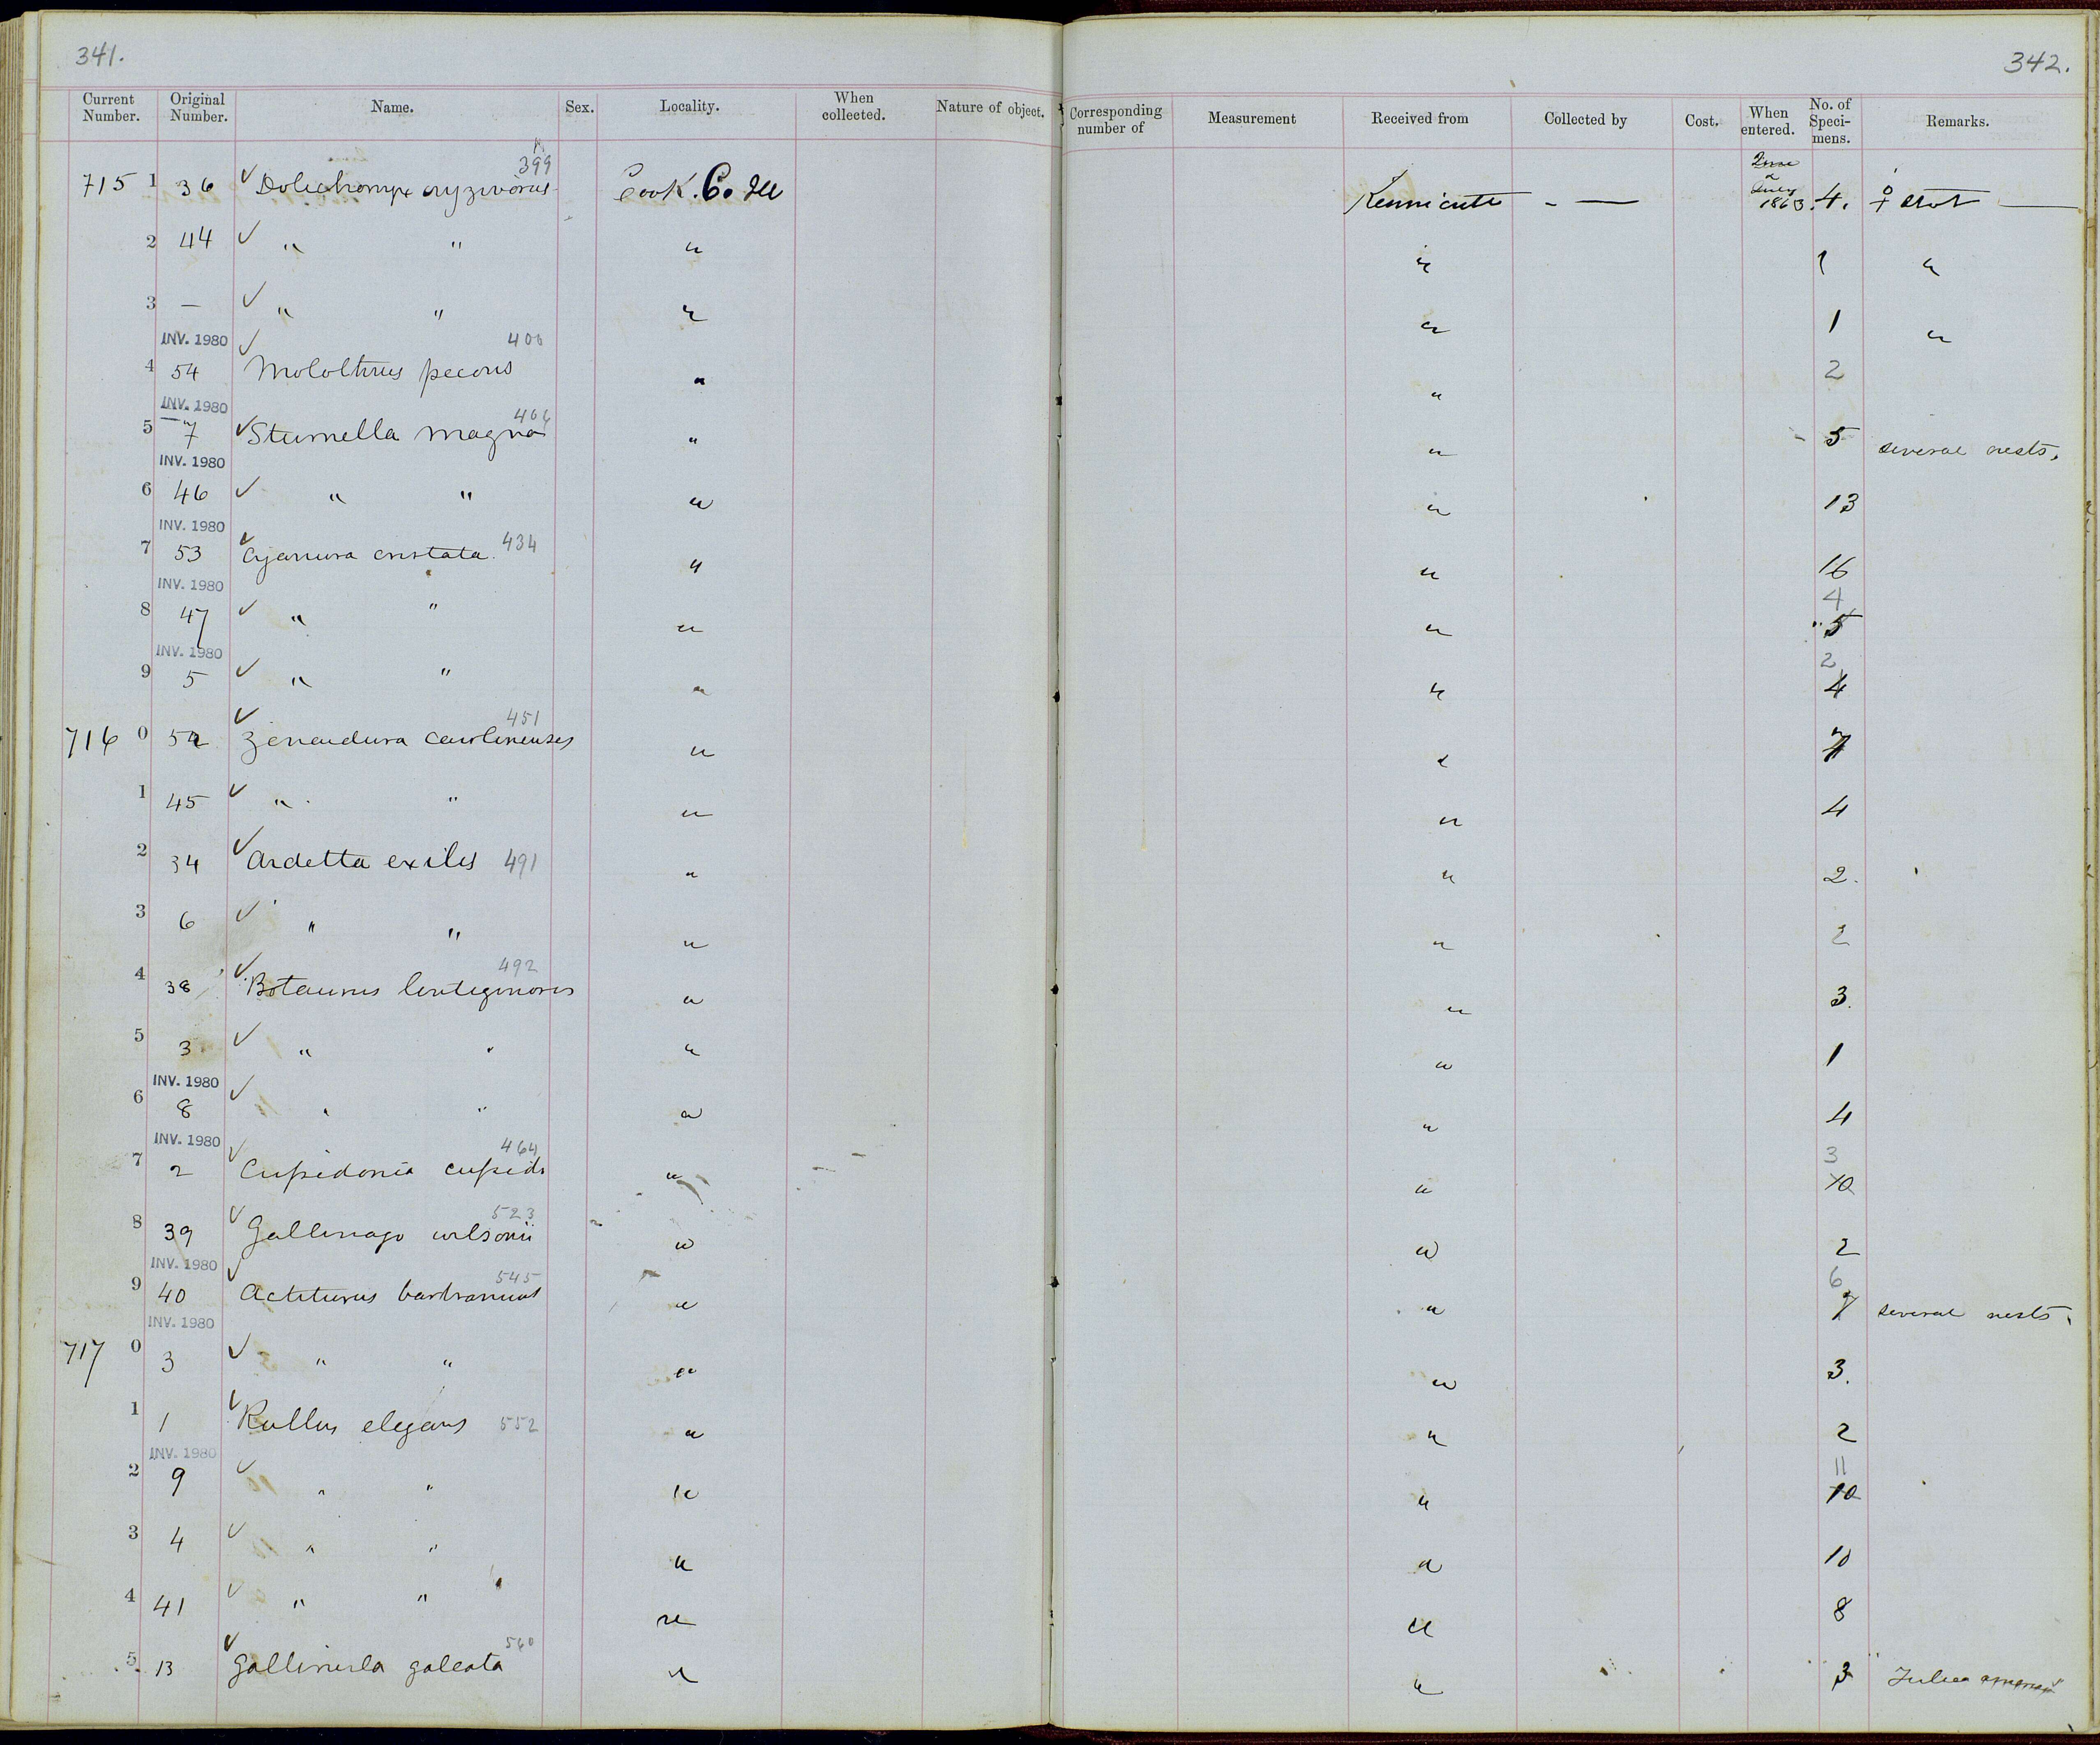 341.
342.
Current Number. Original Number. Name. Sex. Locality. When collected. Nature of object. Corresponding number of Measurement Received from Collected by Cost. When entered. No. of Speci-mens. Remarks.
399
715 1 36 ✓ Dolichonyx oryzivorus Cook. Co Ill Kennicott - — July 1863. 4. ♀ shot —
2 44 ✓ " " " " 1 "
3 — ✓ " " " " 1 "
INV. 1980 ✓ 400
4 54 Molothrus pecoris " " 2
INV. 1980 406
5 7 ✓ Sturnella magna " " 5 several nests.
INV. 1980
6 46 ✓ " " " " 13
INV. 1980
7 53 ✓ Cyanura cristata. 434 " " 16
INV. 1980 4
8 47 ✓ " " " " 5
INV. 1980 2
9 5 ✓ " " " " 4
✓ 451
716 0 52 Zenaidura carolinensis " " 7
1 45 ✓ " " " " 4
2 34 ✓ Ardetta exilis 491 " " 2.
3 6 ✓ " " " " 2
492
4 38 ✓ Botaurus lentiginosis " " 3.
5 3 ✓ " " " " 1
INV. 1980
6 8 ✓ " " " " 4
INV. 1980 464 3
7 2 ✓ Cupidonia cupido " " 10
523
8 39 ✓ Gallinago wilsonii " " 2
INV. 1980 545 6
9 40 ✓ Actiturus bartramius " " 7 several nests.
INV. 1980
717 0 3 ✓ " " " " 3.
1 1 ✓ Rallus elegans 552 " " 2
INV. 1980 11
2 9 ✓ " " " " 10
3 4 ✓ " " " " 10
4 41 ✓ " " " " 8
560
5 13 ✓ Gallinula galeata " " 3